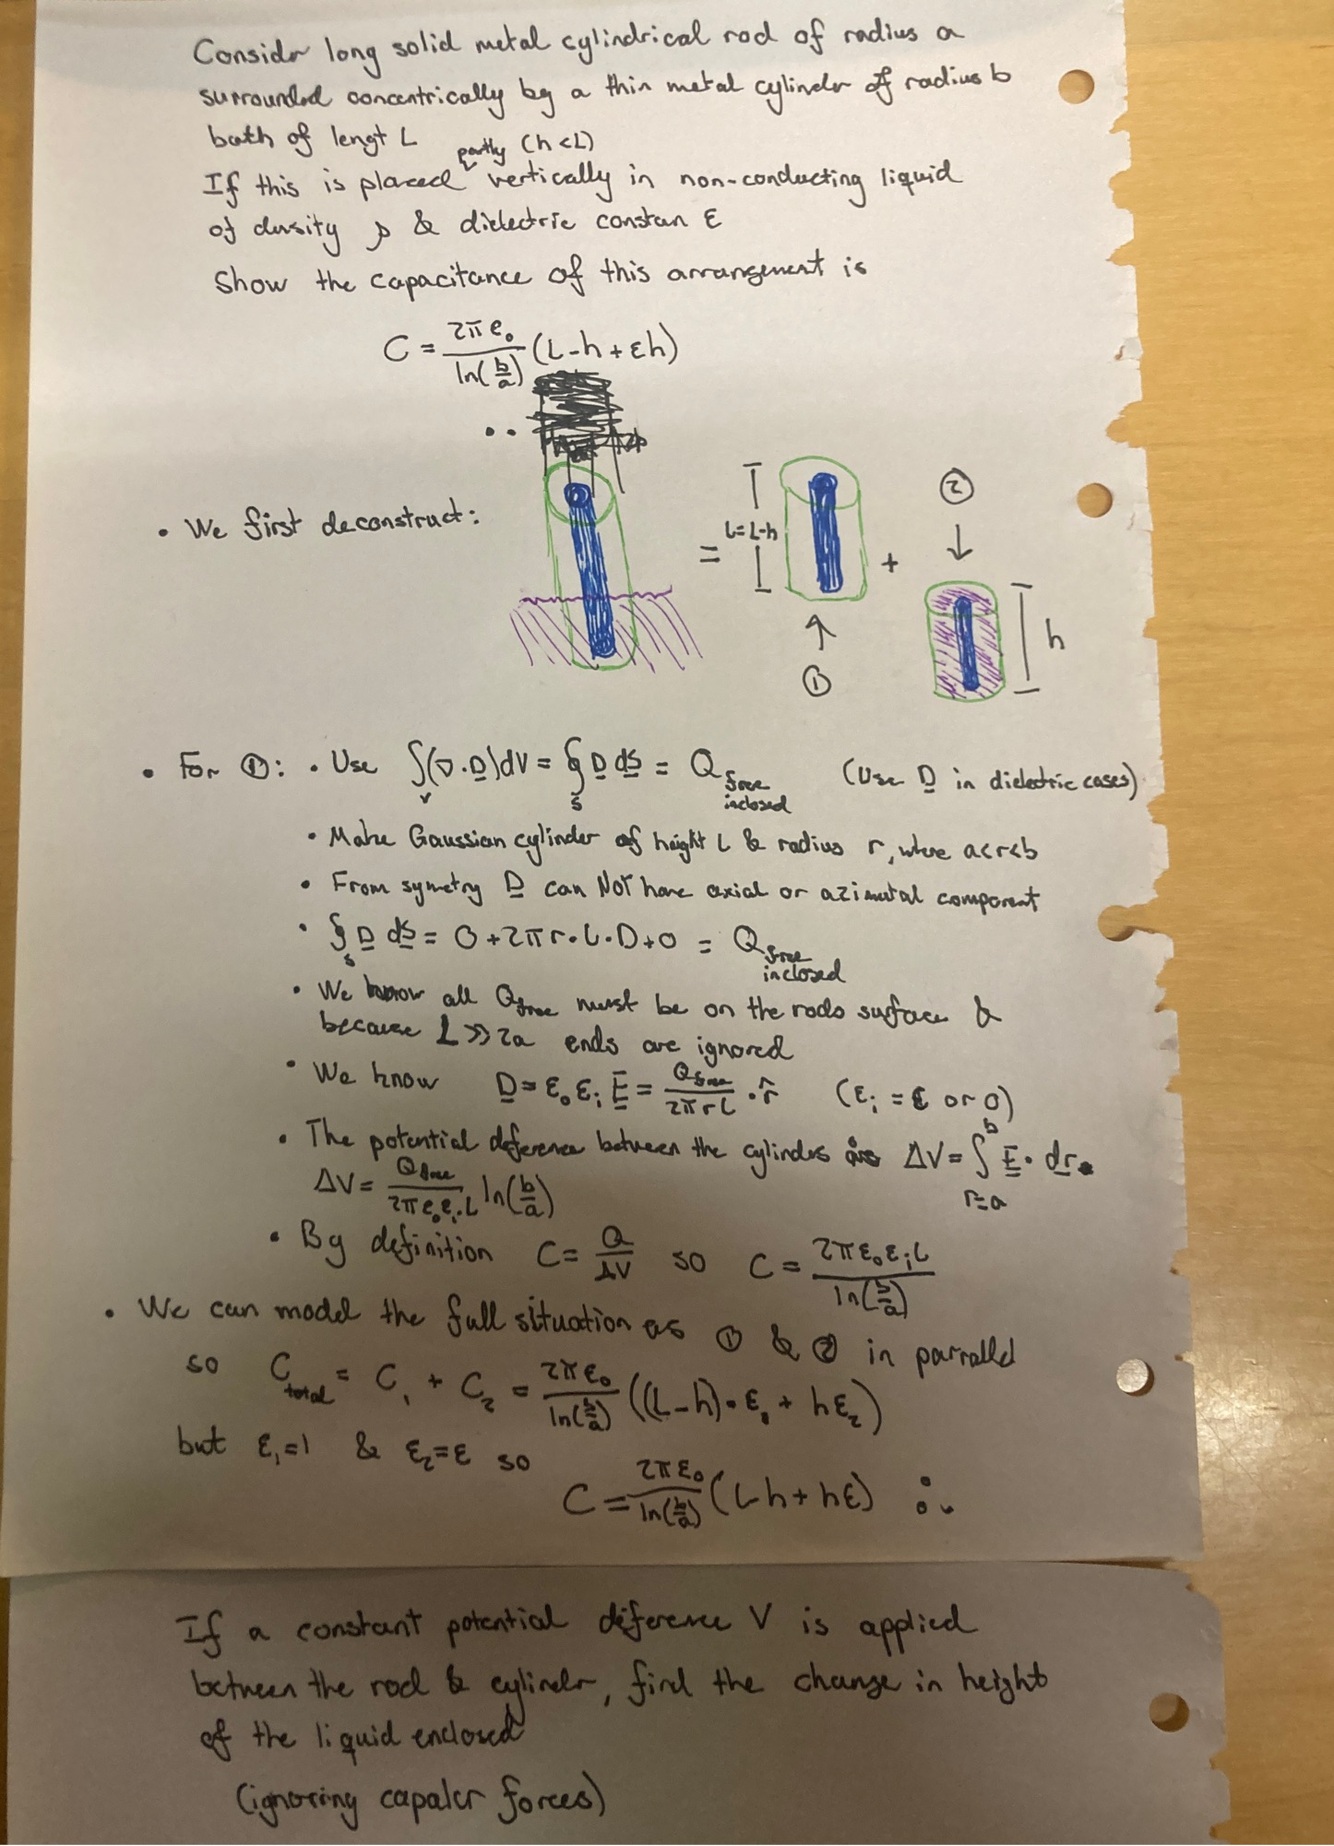 Consider long solid metal cylindrical rod of radius a
surrounded concentrically by a thin metal cylinder of radius b
both of lengt L
If this is placed partly (h<L) vertically in non-conducting liquid
of density ρ & dielectric constan ε
Show the capacitance of this arrangement is
C = 2πe₀/ln(b/a) (L-h+εh)
• We first deconstruct:
= l=L-h + h
①
②
• For ①: • Use ∫_v(∇·D)dV = ∮_s D ds = Q free inclosed (Use D in dielectric cases)
• Make Gaussian cylinder of height l & radius r, where a<r<b
• From symetry D can NOT have axial or azimutal component
• ∮_s D ds = 0+2πr·l·D+0 = Q free inclosed
• We know all Q free must be on the rods surface &
because L>>2a ends are ignored
• We know D = ε₀εᵢE = Q free/2πrl · r̂ (εᵢ = ε or 0)
• The potential deference between the cylindes is ΔV = ∫_{r=a}^b E · dr
ΔV = Q free/2πe₀eᵢl ln(b/a)
• By definition C = Q/ΔV so C = 2πε₀εᵢl/ln(b/a)
• We can model the full situation as ① & ② in parralel
so C total = C₁ + C₂ = 2πε₀/ln(b/a) ((L-h)·ε₁ + hε₂)
but ε₁=1 & ε₂=ε so
C = 2πε₀/ln(b/a) (L-h+hε)
If a constant potential diference V is applied
between the rod & cylindr, find the change in height
of the liquid enclosed
(ignoring capaler forces)